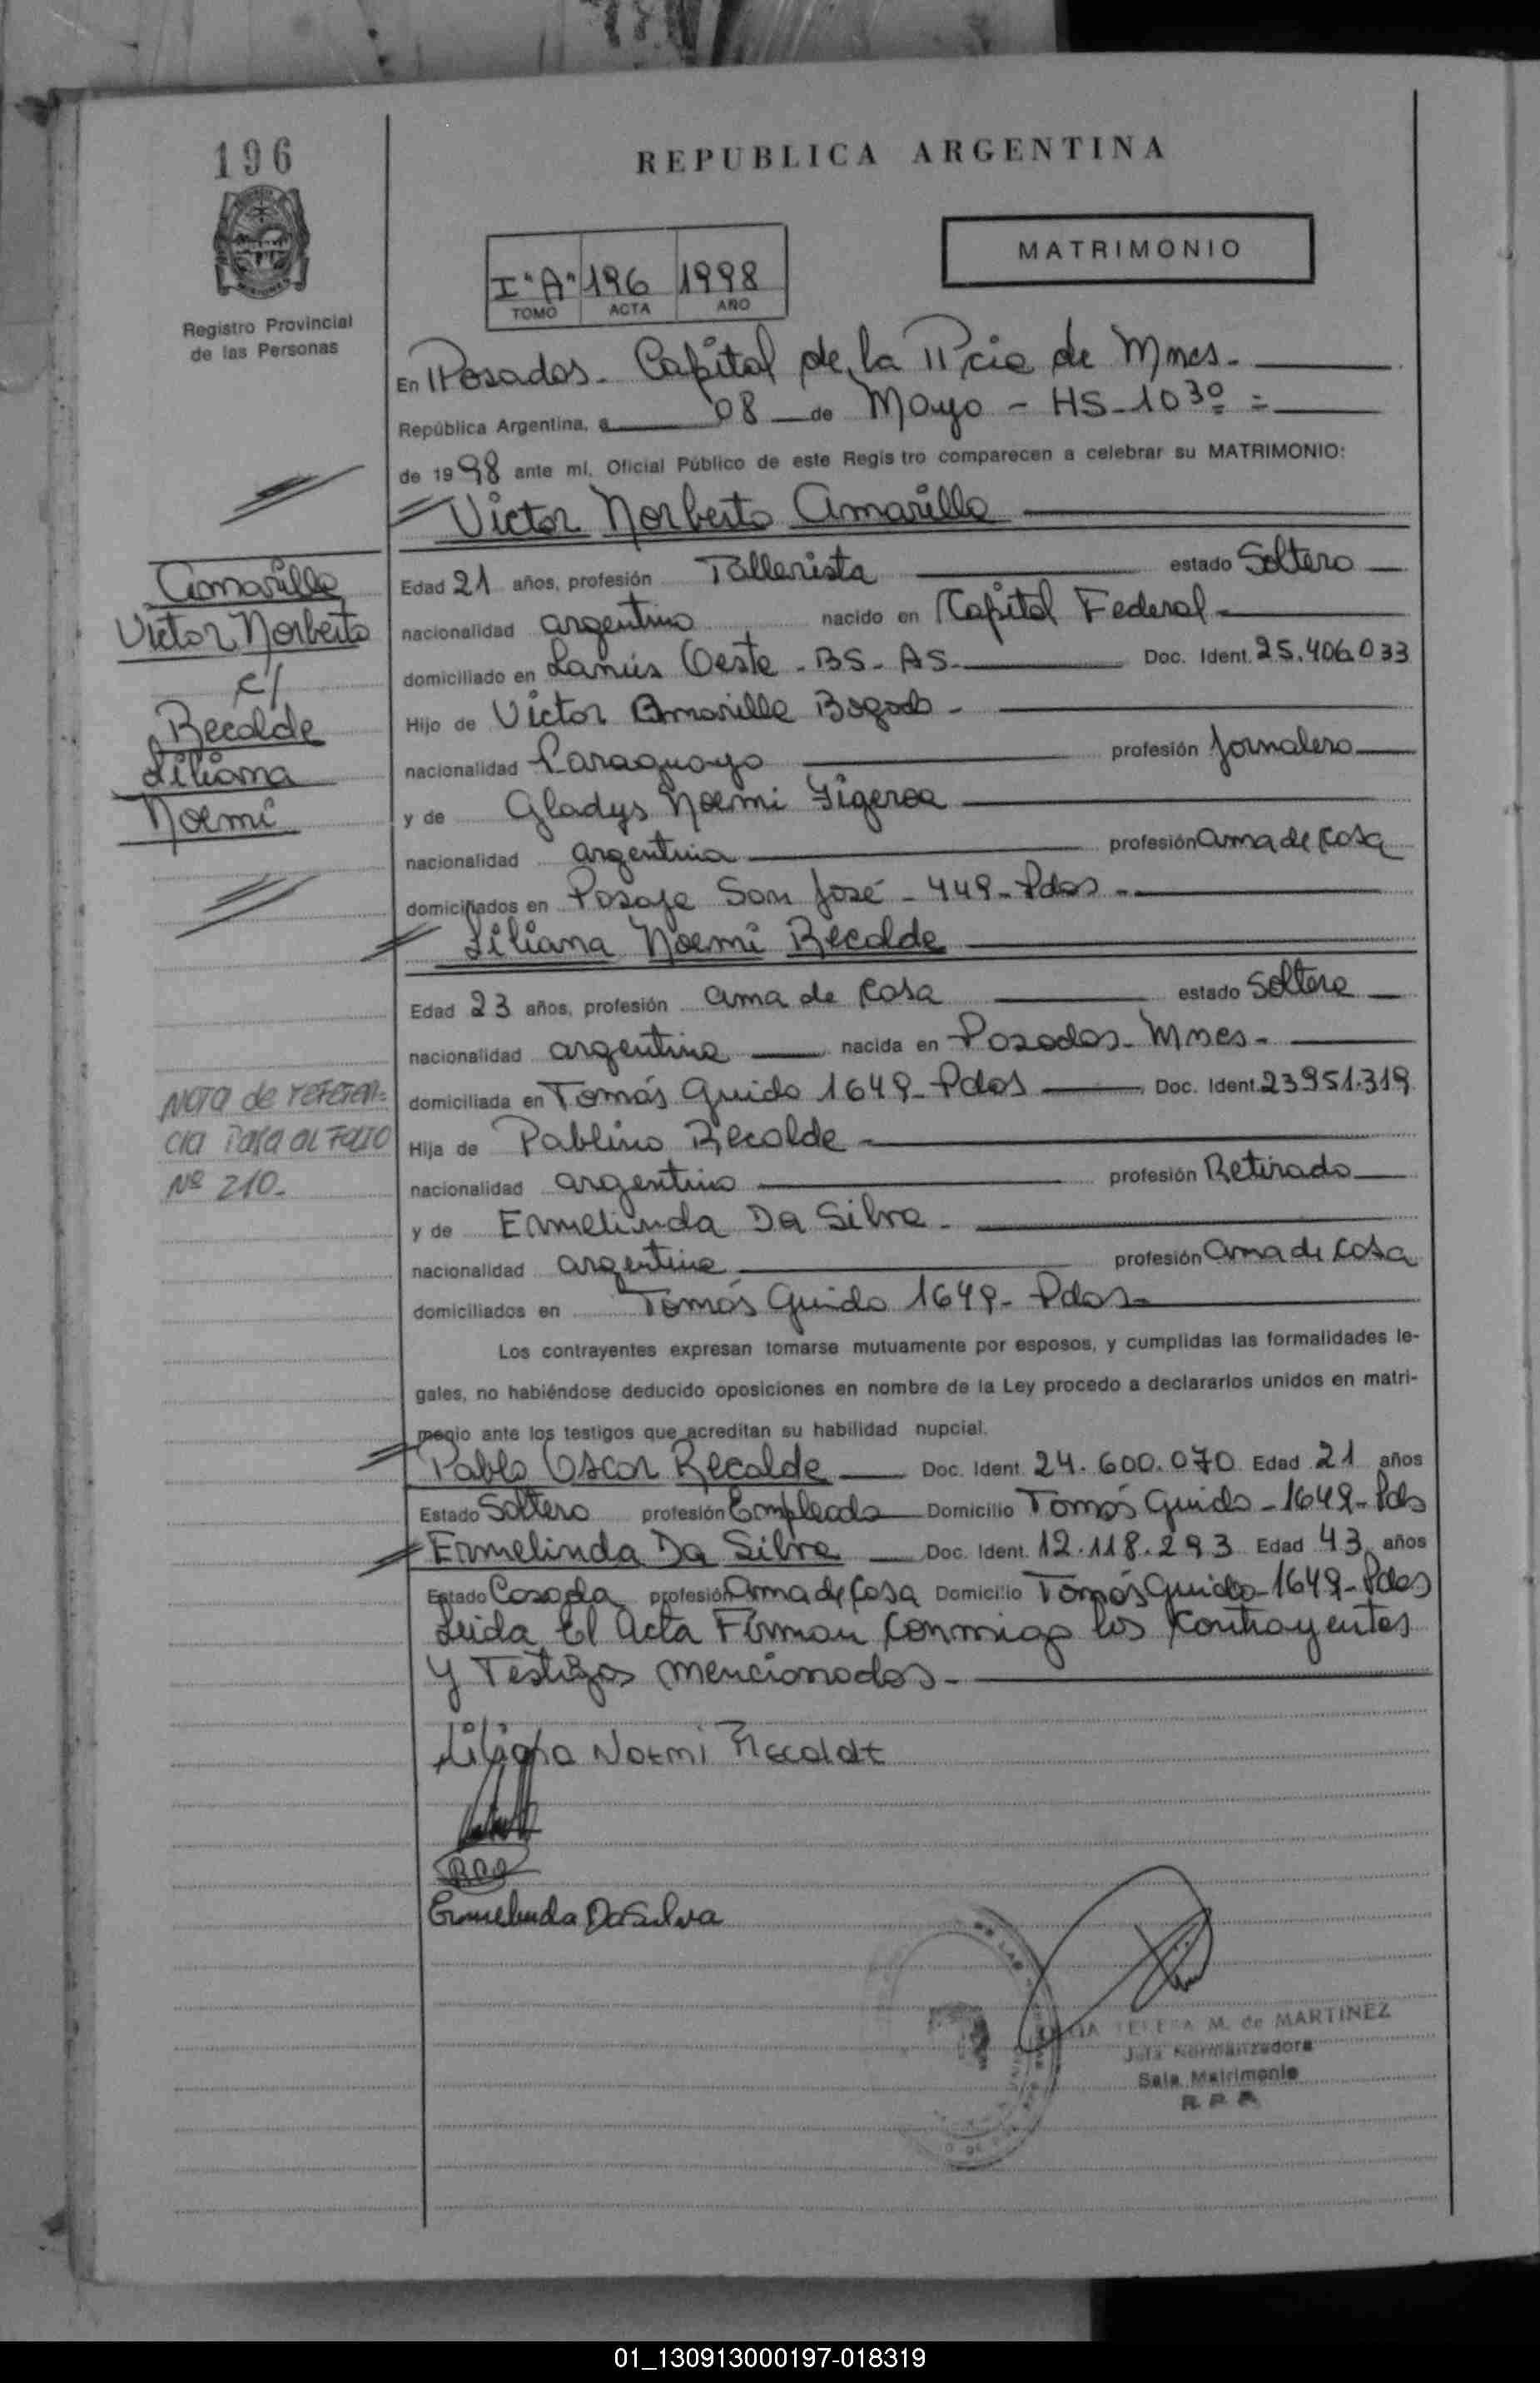 196
REPUBLICA ARGENTINA
MATRIMONIO
I "A" 196 1998
TOMO ACTA AÑO
Registro Provincial
de las Personas
En Posadas - Capital de la Pcia de Mnes -
República Argentina, a 08 de Mayo - HS - 10 30 =
de 1998 ante mí, Oficial Público de este Registro comparecen a celebrar su MATRIMONIO:
Victor Norberto Amarilla
Edad 21 años, profesión Tallerista estado Soltero
nacionalidad argentino nacido en Capital Federal -
domiciliado en Lanús Oeste - BS - AS - Doc. Ident. 25.406.033
Hijo de Victor Amarilla Bogado -
nacionalidad Paraguayo profesión Jornalero
y de Gladys Noemi Figeroa
nacionalidad argentina profesión ama de casa
domiciliados en Pasaje San José - 449 - Pdas -
Liliana Noemi Recalde
Edad 23 años, profesión ama de casa estado Soltera
nacionalidad argentina nacida en Posadas - Mnes -
domiciliada en Tomás Guido 1649 - Pdas Doc. Ident. 23951.319
Hija de Pablino Recalde -
nacionalidad argentino profesión Retirado
y de Ermelinda Da Silva -
nacionalidad argentina profesión ama de casa
domiciliados en Tomás Guido 1649 - Pdas -
Los contrayentes expresan tomarse mutuamente por esposos, y cumplidas las formalidades le-
gales, no habiéndose deducido oposiciones en nombre de la Ley procedo a declararlos unidos en matri-
monio ante los testigos que acreditan su habilidad nupcial.
Pablo Oscar Recalde Doc. Ident. 24.600.070 Edad 21 años
Estado Soltero profesión Empleado Domicilio Tomás Guido - 1649 - Pds
Ermelinda Da Silva Doc. Ident. 12.118.293 Edad 43 años
Estado Casada profesión Ama de Casa Domicilio Tomás Guido - 1649 - Pdas
Leida El Acta Firman Conmigo los Contrayentes
y Testigos mencionados -
Liliana Noemi Recalde
Ermelinda Da Silva
TERESA M. de MARTINEZ
Jefa Normalizadora
Sala Matrimonio
R. P. P.
Amarilla
Victor Norberto
c/
Recalde
Liliana
Noemi
Nota de referen-
cia Pasa al Folio
Nº 210.
01_130913000197-018319